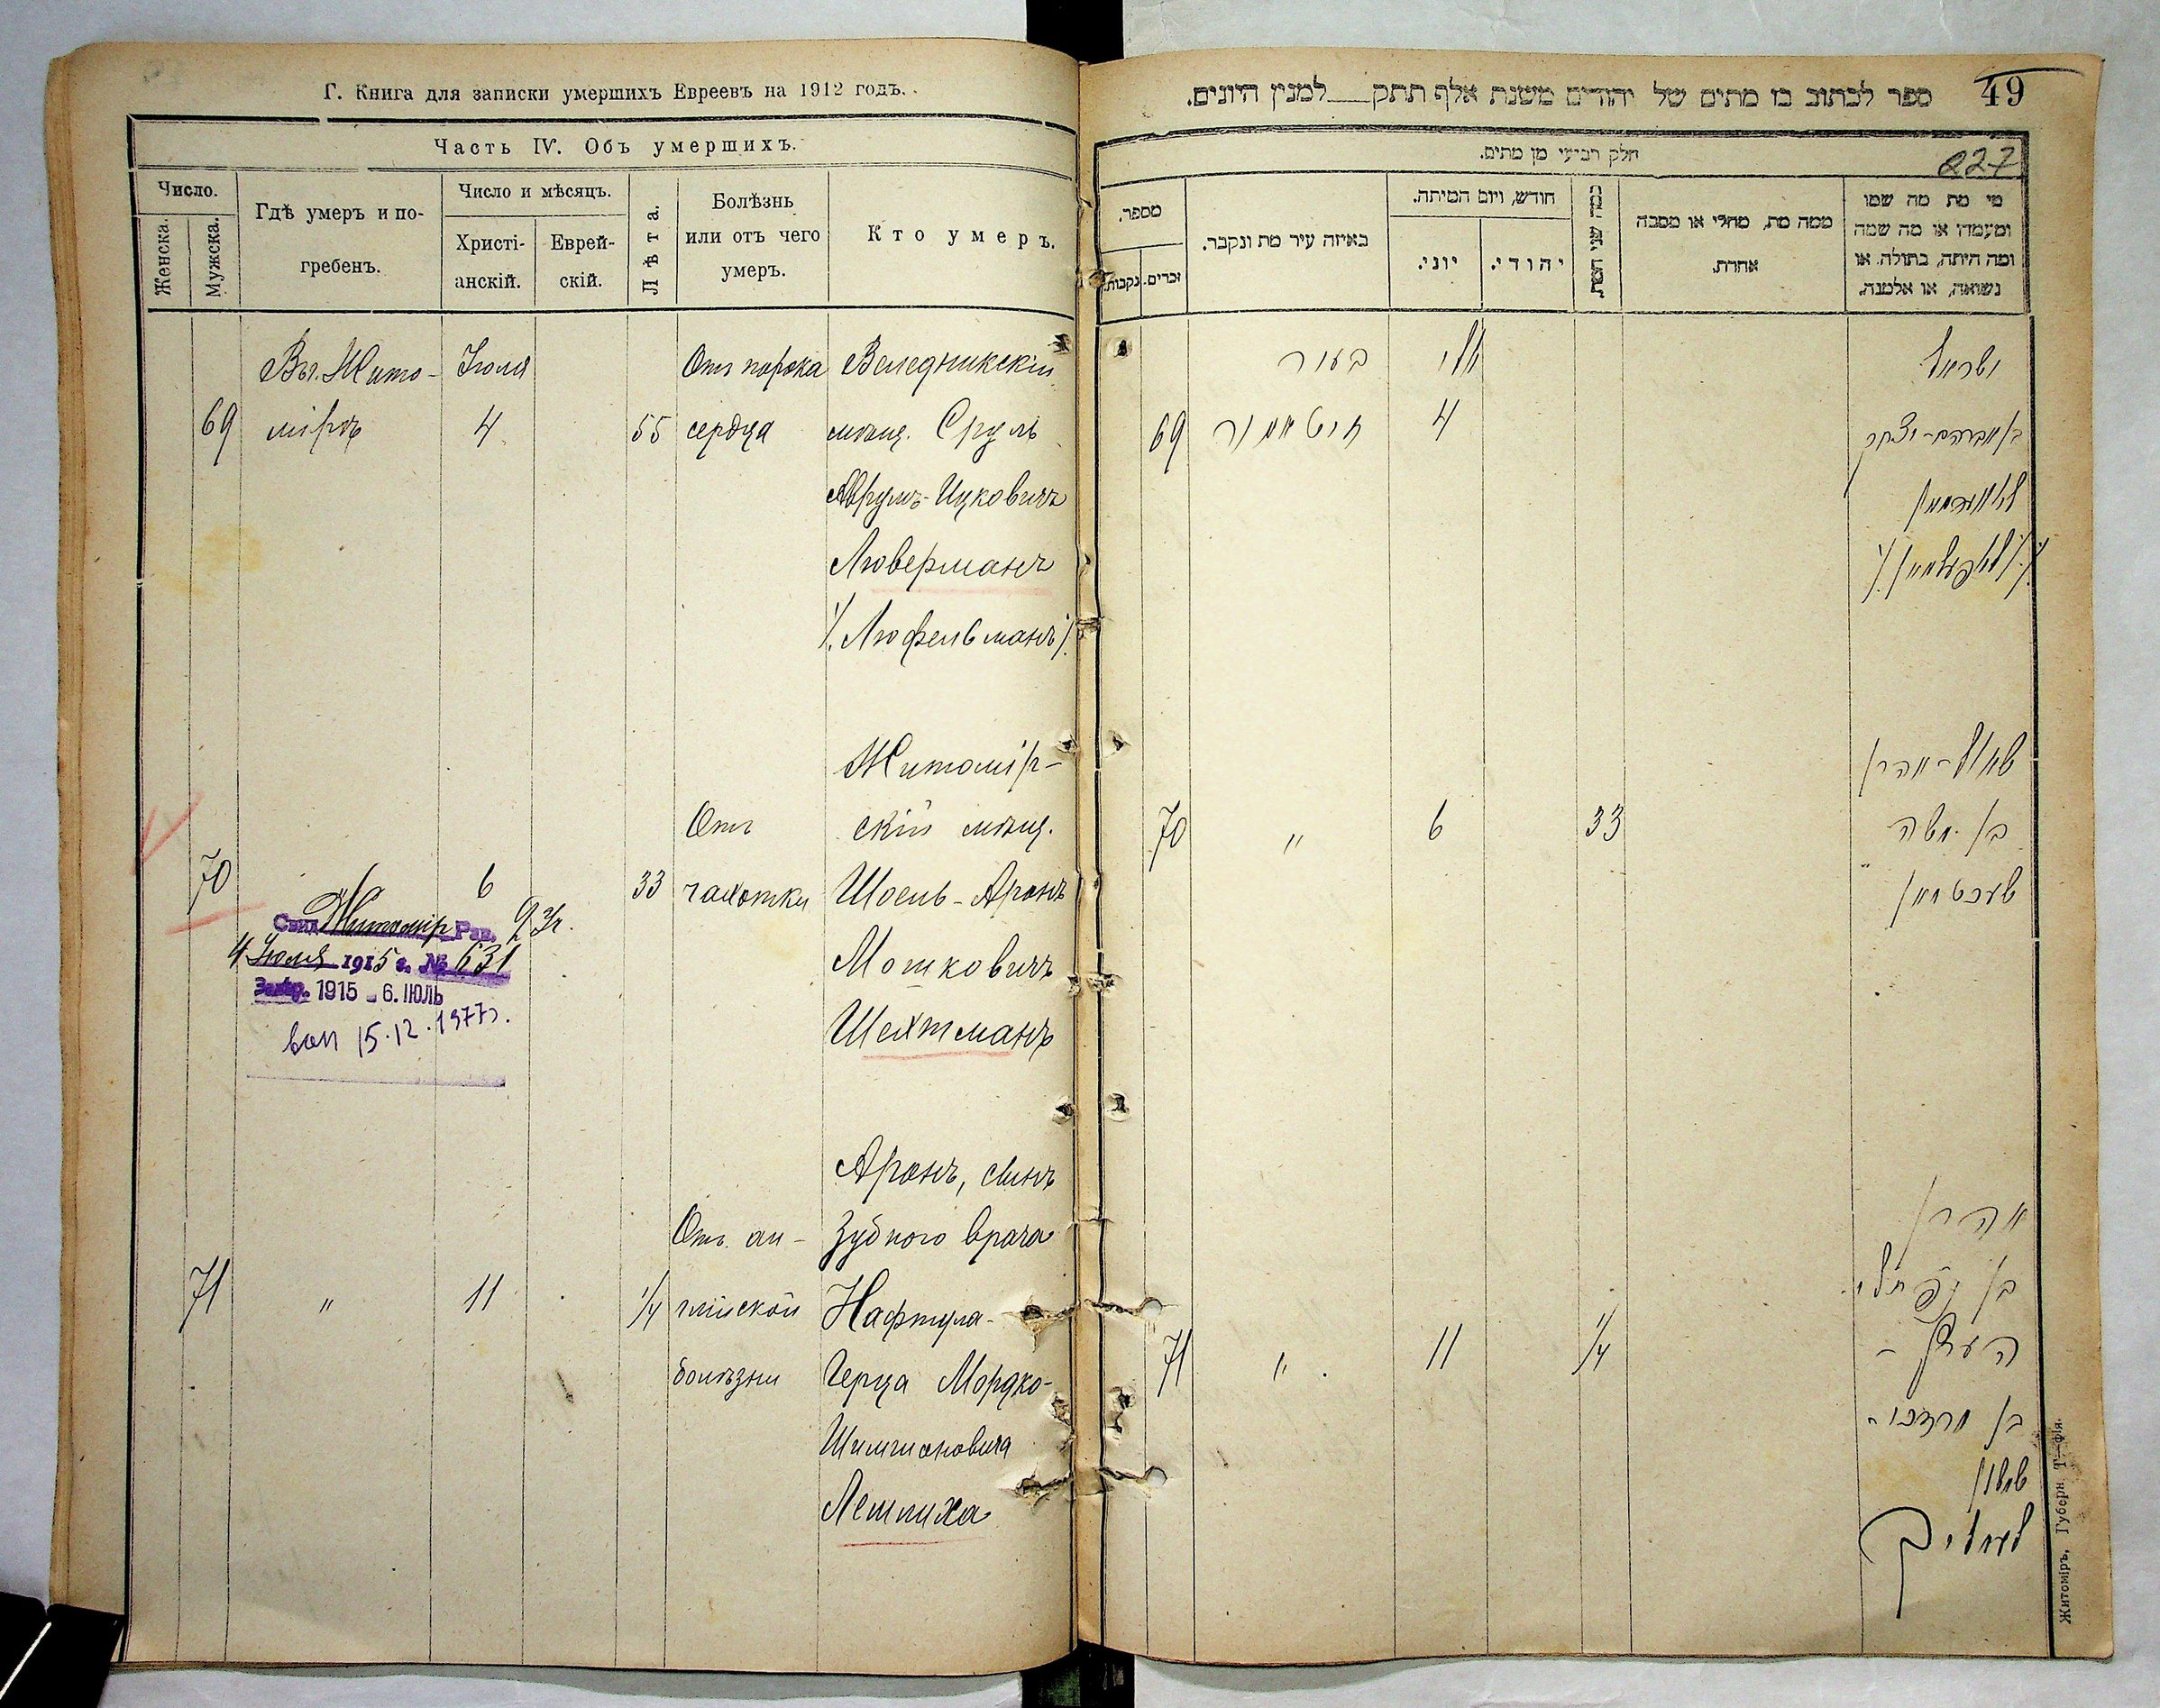 Г. Книга для записки умершихъ Евреевъ на 1912 годъ.
Часть IV. Объ умершихъ.
Число.
Женска.
Мужска.
Гдѣ умеръ и по-
гребенъ.
Число и мѣсяцъ.
Христі-
анскій.
Еврей-
скій.
Лѣта.
Болѣзнь
или отъ чего
умеръ.
Кто умеръ.
Въ г. Жито-
Іюля
Отъ порока
Веледникскій
69
мірѣ
4
55
сердца
мѣщ. Сруль
Аврумъ-Ицковичъ
Люверманъ
/. Люфельманъ /.
Житомір-
Отъ
скій мѣщ.
70
"
6
33
чахотки
Шоель-Аронъ
Мошковичъ
Шехтманъ
Свид. Житомір Рав. 9 Уч.
4 Іюля 1915 г. № 631
1915 - 6. ІЮЛЬ
15.12.1977г.
Аронъ, сынъ
Отъ ан-
Зубного врача
71
"
11
1/4
глійской
Нафтула-
болѣзни
Герца Мордко-
Шимшоновича
Лемпиха
ספר לכתוב בו מתים של יהודים משנת אלף תתק___למנין היונים.
49
חלק רביעי מן מתים.
227
מספר.
זכרים.
נקבות.
באיזה עיר מת ונקבר.
חודש, ויום המיתה.
יוני.
יהודי.
כמה שני המת.
ממה מת, מחלי או מסבה
אחרת.
מי מת מה שמו
ומעמדו או מה שמה
ומה היתה, בתולה, או
נשואה, או אלמנה.
בעיר
יולי
ישראל
69
זיטאמיר
4
בן אברהם-יצחק
ליווערמאן
/. ליופעלמאן /.
שאול-אהרן
70
"
6
33
בן משה
שעכטמאן
אהרן
בן נפתלי
הערץ -
71
"
11
1/4
בן מרדכי -
שמשון
Житоміръ, Губерн. Т—фія.